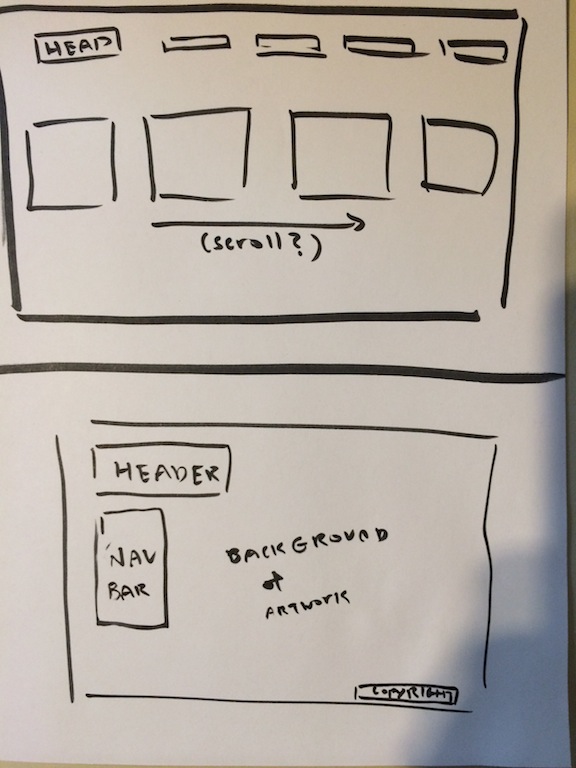 HEAD
(scroll?)
HEADER
NAV
BAR
BACKGROUND
of
ARTWORK
COPYRIGHT